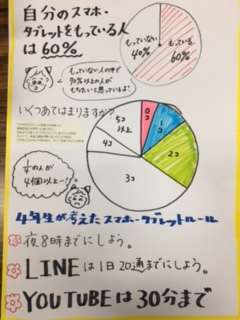 自分のスマホ・
タブレットをもっている人
は60%
もっていない
40%
もっている
60%
もっていない人の中で
90%以上の人が
もちたいと思っているよ!
いくつあてはまりますか?
0コ
1コ
2コ
3コ
4コ
5コ
以上
の人が
4個以上ー!!
4年生が考えたスマホ・タブレットルール
夜8時までにしよう。
LINEは1日20通までにしよう。
YOUTUBEは30分まで